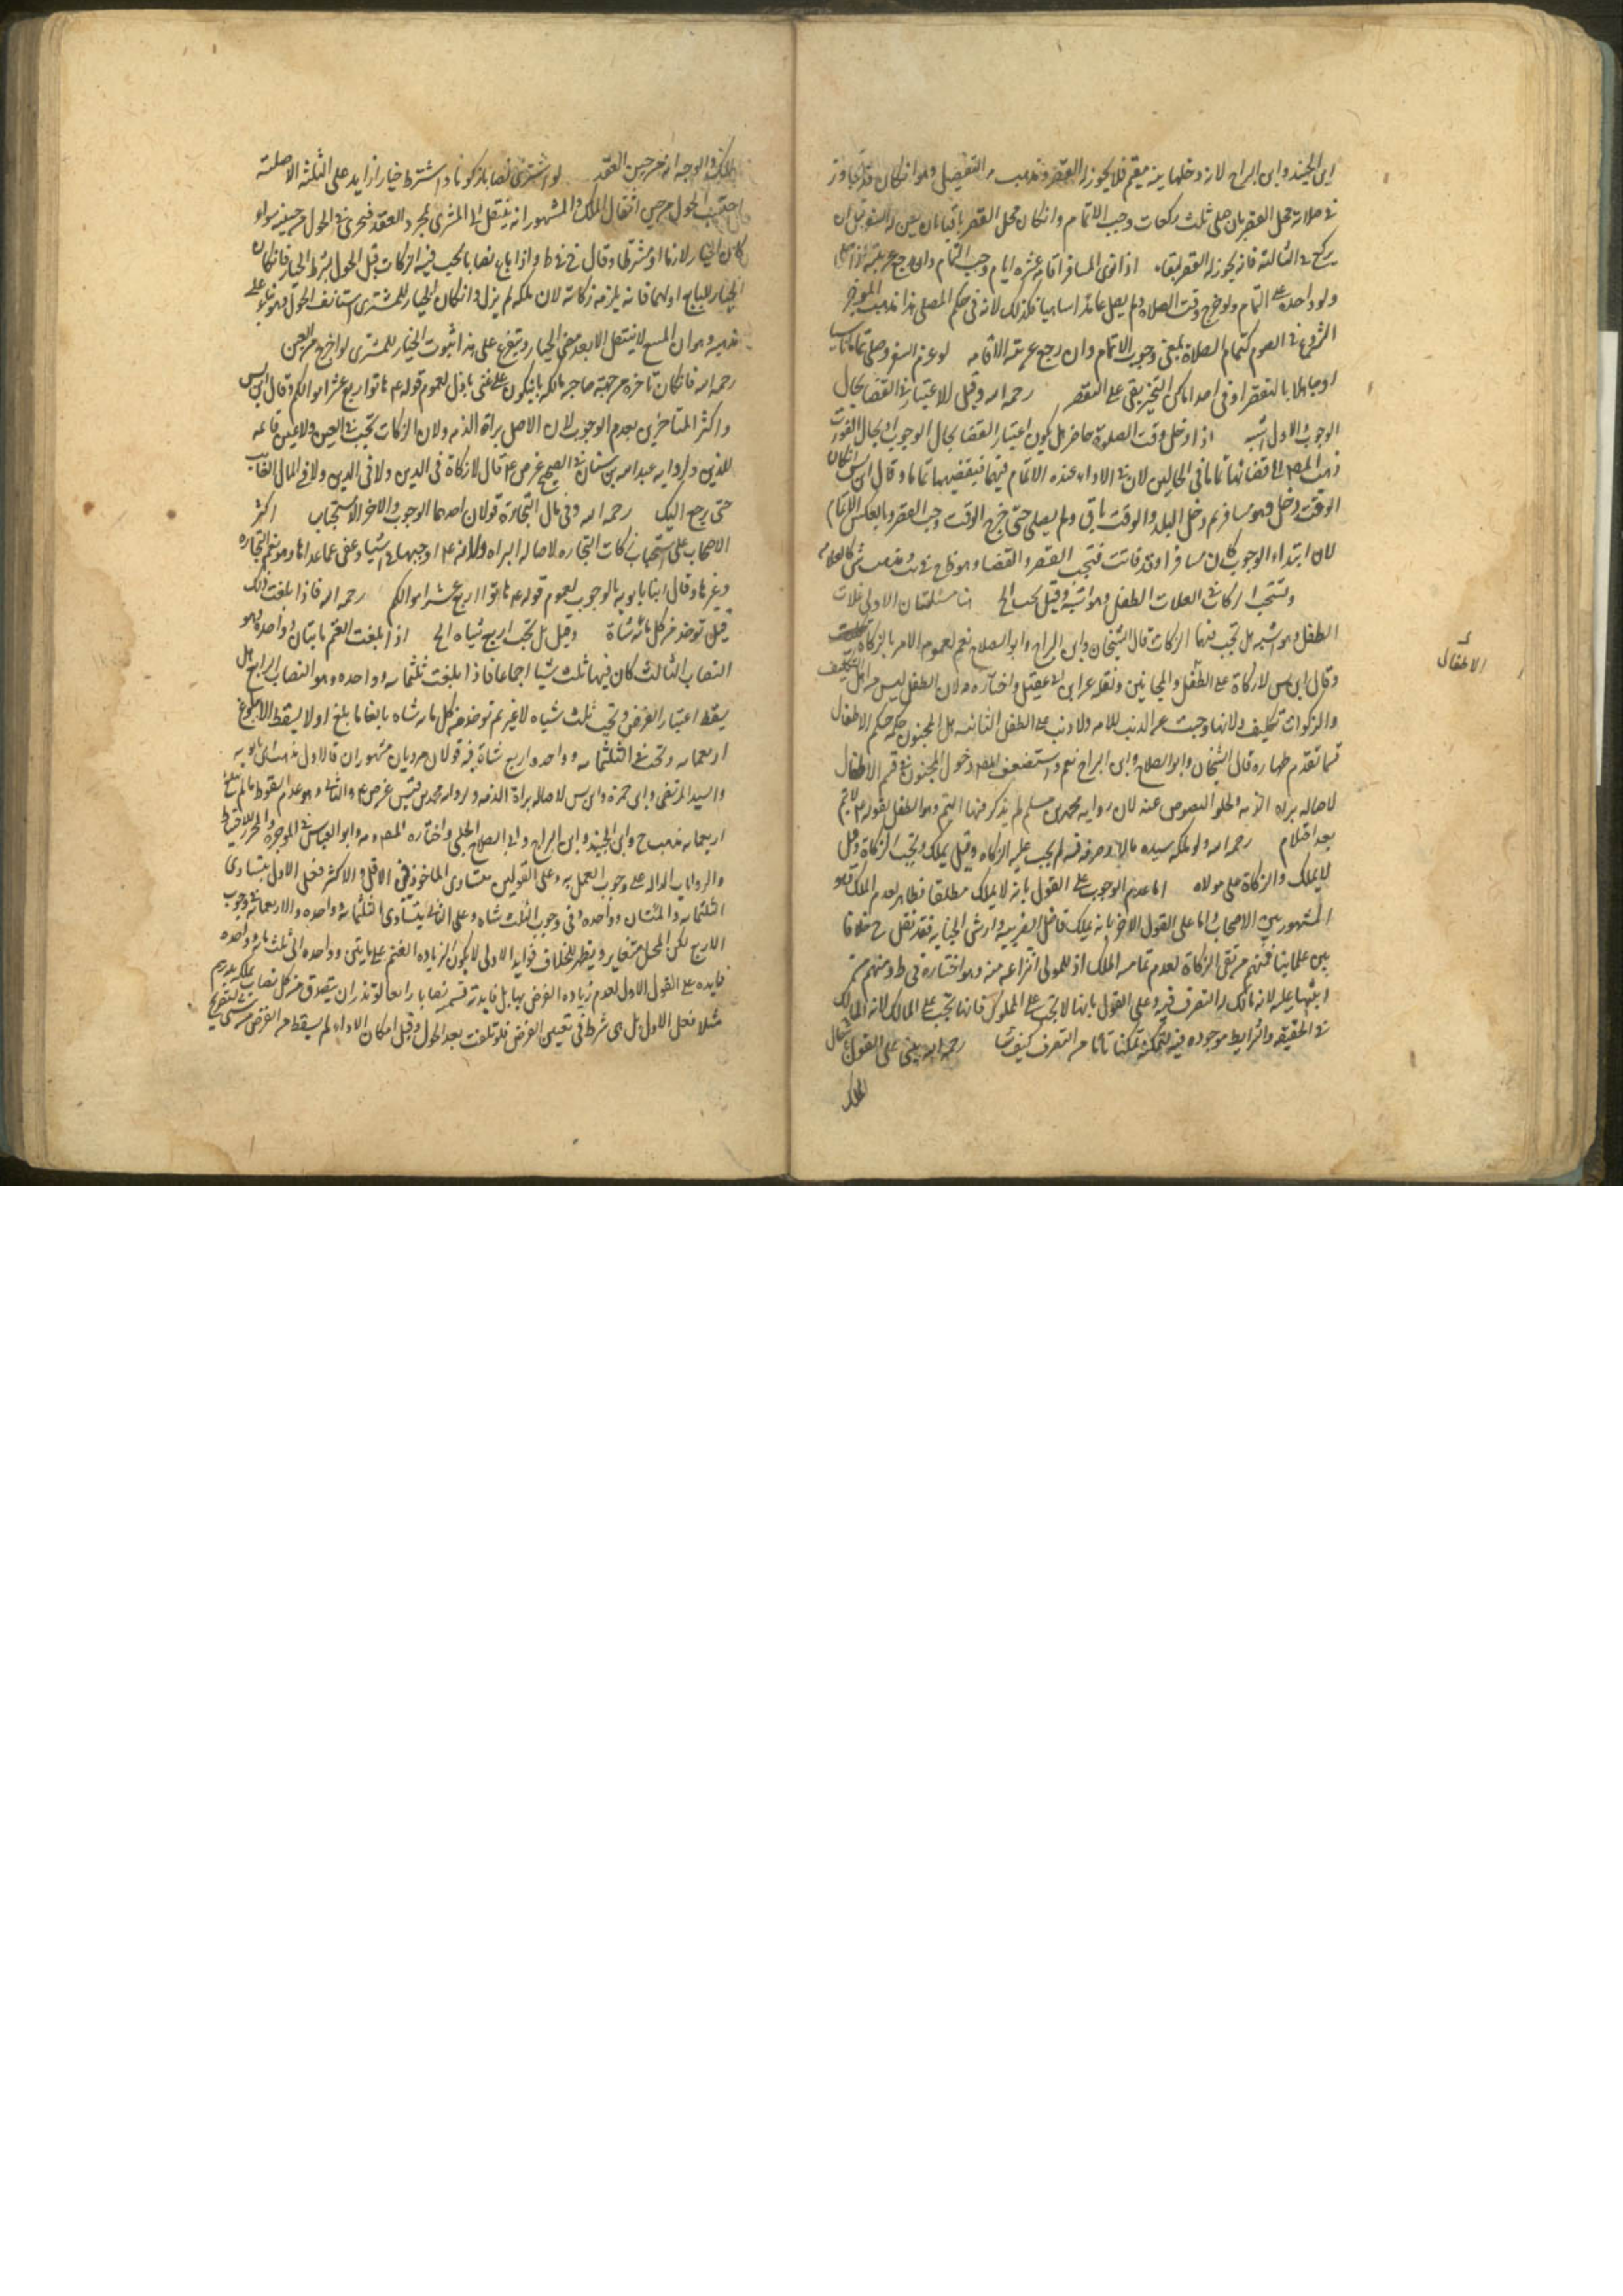 ابن الجنيد وابن البراج لانه دخلها بنية مقيم فلا يجوز له القصر ومذهب التفصيل وهو ان كان قد تجاوز
في صلاته محل القصر بان صلى ثلث ركعات وجب الاتمام وان كان محل القصر باقيا بان
يركع في الثالثة فانه يجوز له القصر اذا نوى المسافر اقامه عشره ايام وجب التمام وان رجع عن نيته
ولو واحدة على التمام ولو خرج وقت الصلاه ولم يصل عامدا او ساهيا فكذلك لانه في حكم المصلي هذا مذهب
الشروع في الصوم كتمام الصلاة بمعنى وجوب الاتمام وان رجع عن نية الاقامه لو عزم السفر وصلى تماما ناسيا
او جاهلا بالتقصير او في احد اماكن التخيير بقى على التقصير رحمه الله وقيل الاعتبار في القضا بحال
الوجوب والاول اشبه اذا دخل وقت الصلوة حاضرا هل يكون اعتبار القضا بحال الوجوب او بحال الفوت
ذهب المصـ الى قضائها تماما في الحالين لان في الاداء عنده الاتمام فيهما فيقضيها تماما وقال ابن س ان كان
الوقت دخل وهو مسافر ثم دخل البلد والوقت باق ولم يصلي حتى خرج الوقت وجب القصر وبالعكس الاتمام
لان ابتداء الوجوب كان مسافرا وقد فاتت فتجب القصر والقضا
وتستحب الزكاة في الغلات الطفل وهو اشبه وقيل تجب الخ هنا مسئلتان الاولى غلات
الطفل وهو اشبه هل تجب فيها الزكات قال الشيخان وابن البراج وابو الصلاح نعم لعموم الامر بالزكاة
وقال ابن س لا زكاة على الطفل والمجانين ونقله عن ابن ابي عقيل واختاره ولان الطفل ليس من اهل التكليف
والزكوات تكليف ولانها وجبت عن الذنب للامه ولا ذنب على الطفل الثانيه هل المجنون حكمه حكم الاطفال
الاطفال
فيما تقدم طهاره قال الشيخان وابو الصلاح وابن البراج نعم واستضعف المصـ دخول المجنون في قسم الاطفال
لاصاله براه الذمه ولخلو النصوص عنه لان روايه محمد بن مسلم لم يذكر فيها اليتيم وهو الطفل بقوله لا يتم
بعد احتلام رحمه الله ولو ملكه سيده مالا وصرفه فيه لم يجب عليه الزكاه وقيل يملك وتجب الزكاة وقيل
لا يملك والزكاة على مولاه اما عدم الوجوب على القول بانه لا يملك مطلقا فظاهر لعدم الملك
المشهور بين الاصحاب واما على القول الاخر بانه يملك فاضل الضريبه وارش الجنايه فقد نقل خلافا
بين علمائنا فمنهم من نفى الزكاة لعدم تماميه الملك اذ للمولى انتزاعه منه وهو اختياره في ط ومنهم من
اثبتها عليه لانه مالك له التصرف فيه وعلى القول بانها لا تجب على المملوك فانها تجب على المالك لانه المالك
في الحقيقه والشرايط موجوده فيه لتمكنه تمكنا تاما من التصرف كيف شا رحمه الله يبنى على القول بانتقال
الملك
الملك والوجه انه من حين العقد لو اشترى نصابا زكويا واشترط خيارا زايد على الثلثة الاصليه
احتسب الحول من حين انتقال الملك والمشهور انه ينتقل الى المشتري بمجرد العقد فيجري في الحول من حينه سواء
كان الخيار لازما او مشترطا وقال في ط واذا باع نصابا يجب فيه الزكات قبل الحول بشرط الخيار فان كان
الخيار للبايع او لهما فانه يلزمه زكاته لان ملكه لم يزل وان كان الخيار للمشتري استانف الحول وهو بناء على
مذهبه وهو ان المبيع لا ينتقل الا بعد تقضي الخيار ويتفرع على هذا ثبوت الخيار للمشتري لو اخرج من العين
رحمه الله فان كان تاخره من جهة صاحبه مالكه بان يكون على غني باذل لعموم قوله هاتوا ربع عشر اموالكم وقال ابن س
واكثر المتاخرين بعدم الوجوب لان الاصل براة الذمه ولان الزكات تجب في العين ولا عين قائمه
للدين ولروايه عبد الله بن سنان في الصحيح عن ص قال لا زكاة في الدين ولا في المال الغايب
حتى يرجع اليك رحمه الله وفي مال التجارة قولان احدهما الوجوب والاخر الاستحباب اكثر
الاصحاب على استحباب زكات التجاره لاصاله البراه ولانه اوجبها في اشيا وعفى عما عداها
وغيرها وقال ابنا بابويه بالوجوب لعموم قوله هاتوا ربع عشر اموالكم رحمه الله فاذا بلغت ذلك
قيل توخذ من كل مائه شاة وقيل بل تجب اربع شياه الخ اذا بلغت الغنم مايتان وواحده وهو
النصاب الثالث كان فيها ثلث شيا اجماعا فاذا بلغت ثلثمائه وواحده وهو النصاب الرابع هل
يسقط اعتبار الفرض وتجب ثلث شياه لا غير ثم توخذ من كل مايه شاه بالغا ما بلغ او لا يسقط الا ببلوغ
اربعمايه وتجب في الثلثمايه وواحده اربع شاة فيه قولان مرويان مشهوران فالاول مذهب ابن بابويه
والسيد المرتضى وابن حمزة وابن س لاصاله براة الذمه ولروايه محمد بن قيس عن ص والثاني وهو عدم السقوط ما لم تبلغ
اربعمايه مذهب وابن الجنيد وابن البراج وابي الصلاح الحلبي واختاره المصـ وابو العباس في الموجز والمحرر للاحتياط
والروايات الداله على وجوب العمل به وعلى القولين يتساوى الماخوذ في الاقل والاكثر فعلى الاول يتساوى
الثلثمايه والمئتان وواحده في وجوب الثلث شاه وعلى الثاني يتساوى الثلثمايه وواحده والاربعمايه في وجوب
الاربع لكن المحل متغاير ويظهر للخلاف فوايد الاولى لا يكون لزياده الغنم على مايتين وواحده الى ثلثمايه وواحده
فايده على القول الاول لعدم زياده الفرض بها بل فايدته قسميه نصابا رابعا لو نذر ان يتصدق من كل نصاب يملكه بدرهم
مثلا فعلى الاول بل هي شرط في تعيين الفرض فلو تلفت بعد الحول وقبل امكان الاداء لم يسقط من الفرض شي